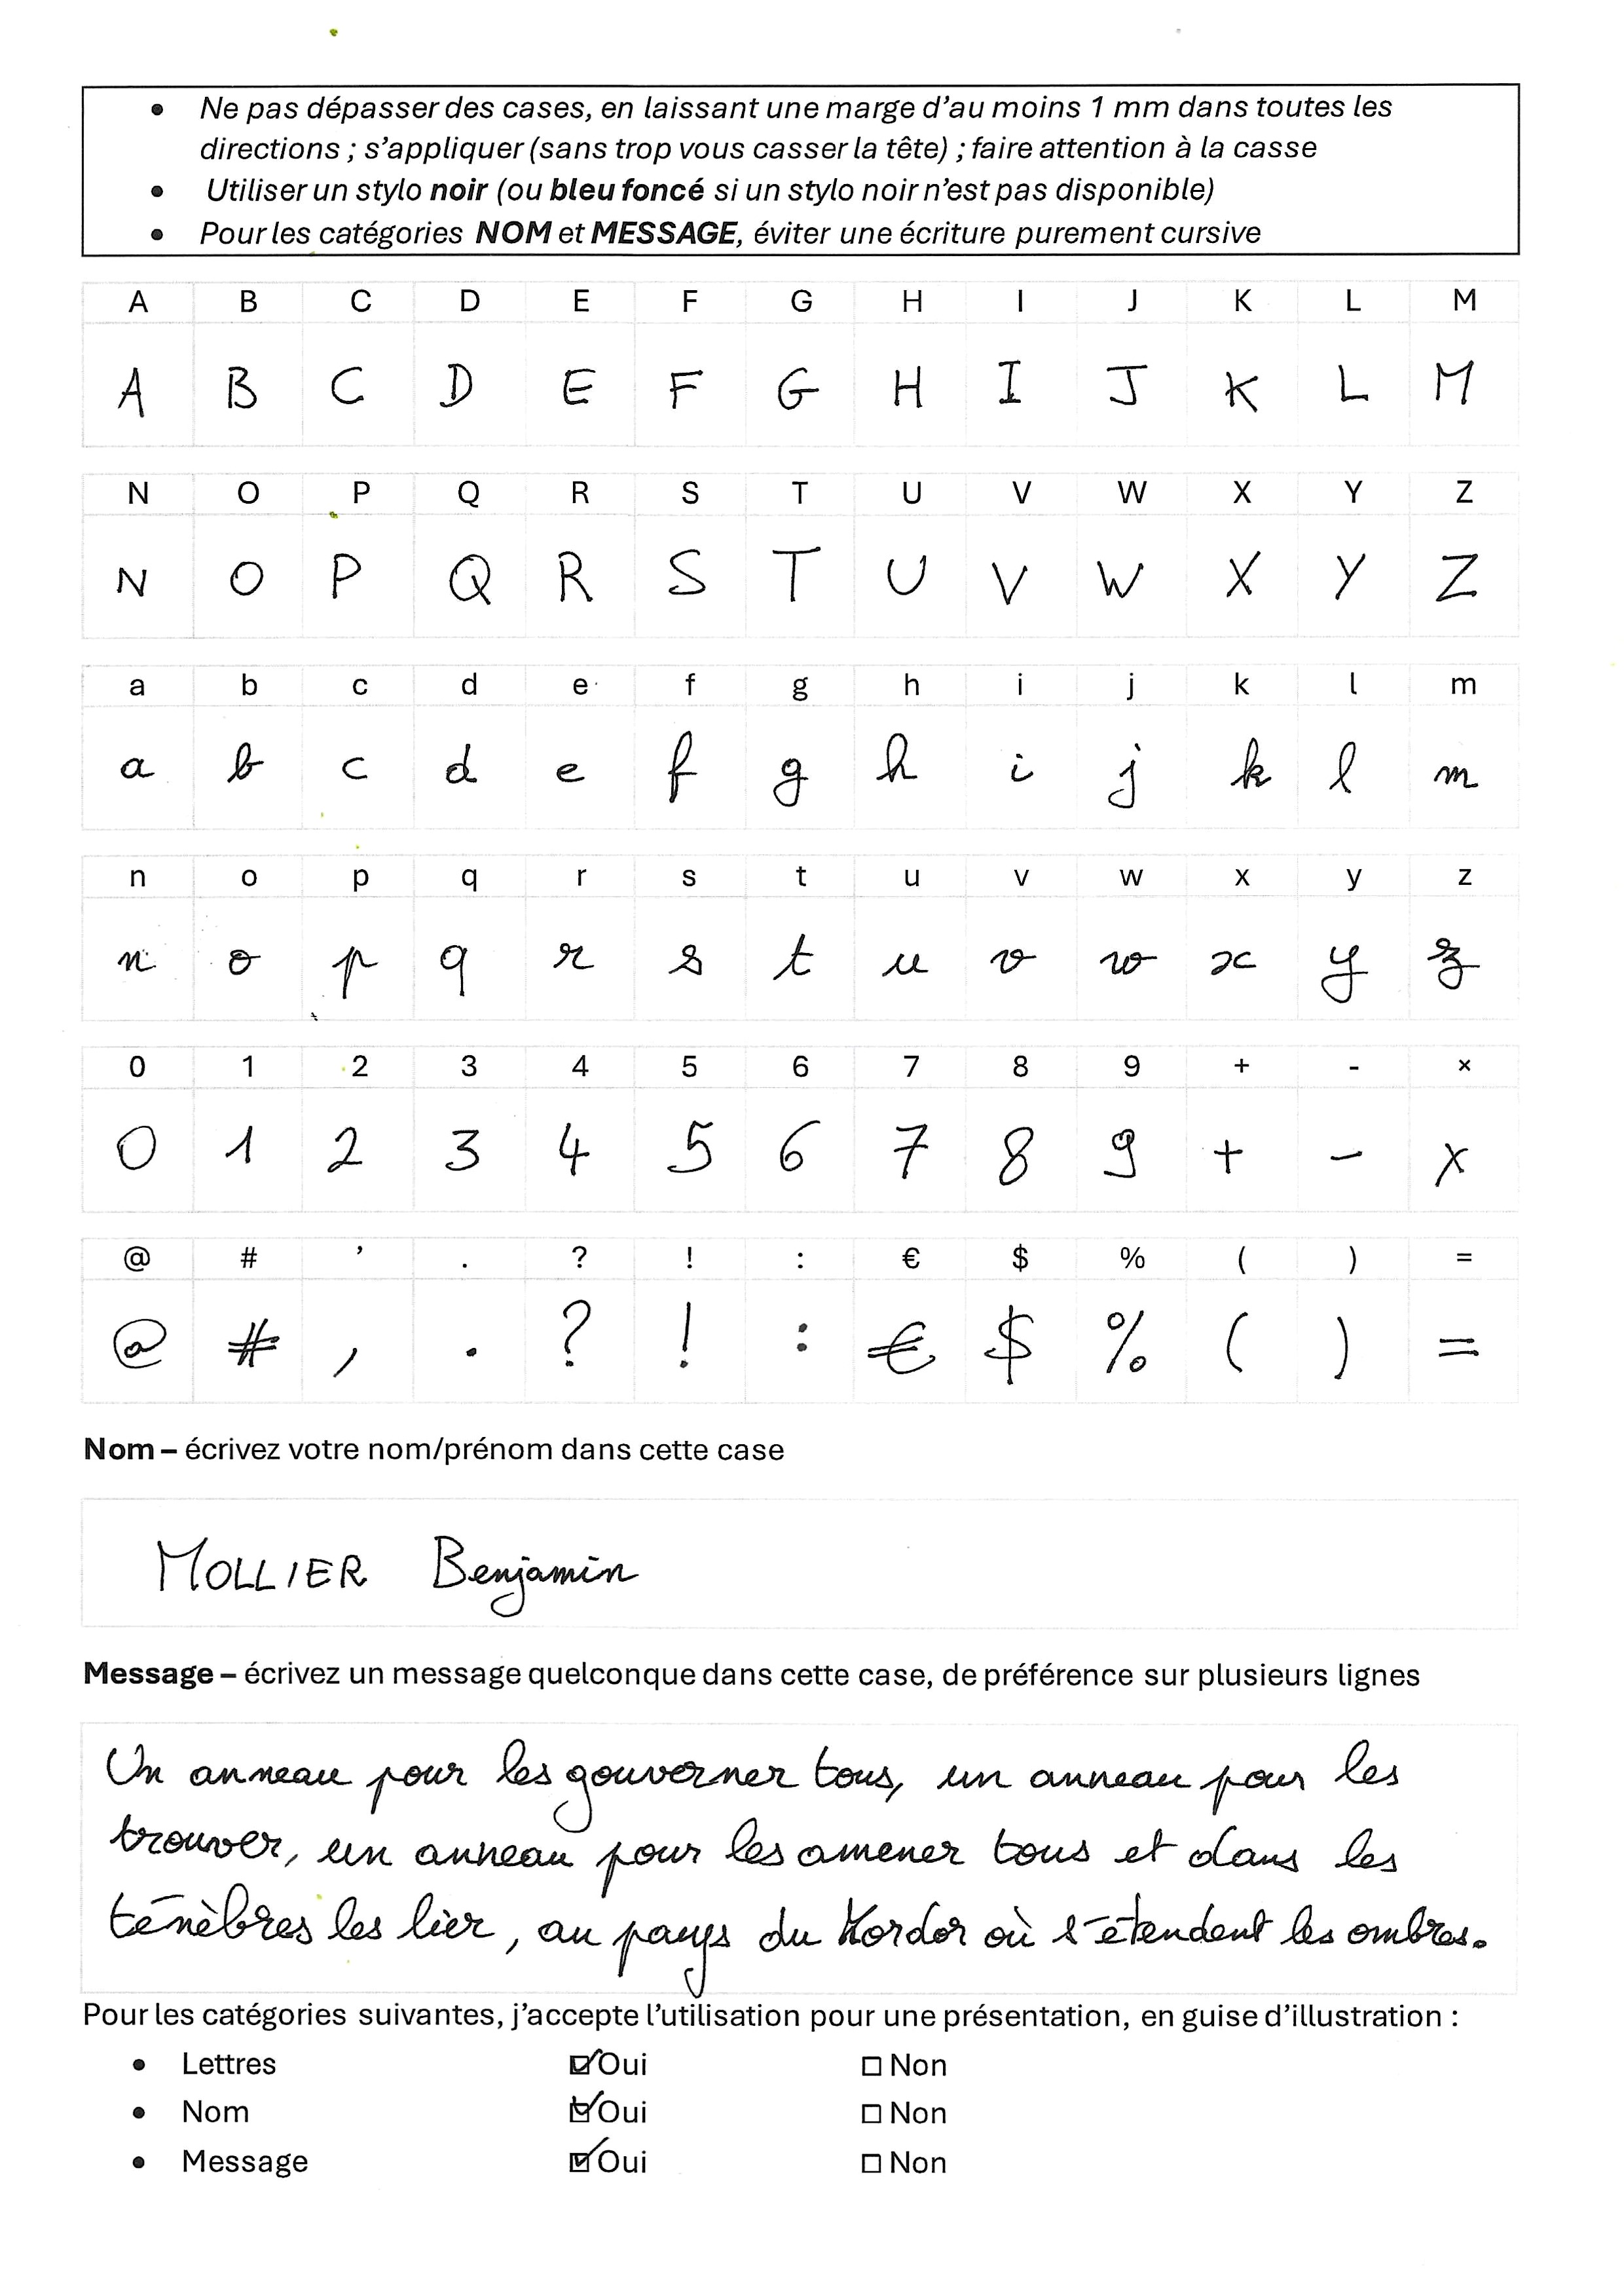 • Ne pas dépasser des cases, en laissant une marge d’au moins 1 mm dans toutes les
directions ; s’appliquer (sans trop vous casser la tête) ; faire attention à la casse
• Utiliser un stylo noir (ou bleu foncé si un stylo noir n’est pas disponible)
• Pour les catégories NOM et MESSAGE, éviter une écriture purement cursive
A B C D E F G H I J K L M
A B C D E F G H I J K L M
N O P Q R S T U V W X Y Z
N O P Q R S T U V W X Y Z
a b c d e f g h i j k l m
a b c d e f g h i j k l m
n o p q r s t u v w x y z
n o p q r s t u v w x y z
0 1 2 3 4 5 6 7 8 9 + - ×
0 1 2 3 4 5 6 7 8 9 + - ×
@ # ’ . ? ! : € $ % ( ) =
@ # , . ? ! : € $ % ( ) =
Nom – écrivez votre nom/prénom dans cette case
MOLLIER Benjamin
Message – écrivez un message quelconque dans cette case, de préférence sur plusieurs lignes
Un anneau pour les gouverner tous, un anneau pour les
trouver, un anneau pour les amener tous et dans les
ténèbres les lier, au pays du Mordor où s'étendent les ombres.
Pour les catégories suivantes, j’accepte l’utilisation pour une présentation, en guise d’illustration :
• Lettres ☑ Oui ☐ Non
• Nom ☑ Oui ☐ Non
• Message ☑ Oui ☐ Non